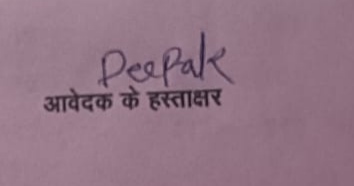 Deepak
आवेदक के हस्ताक्षर